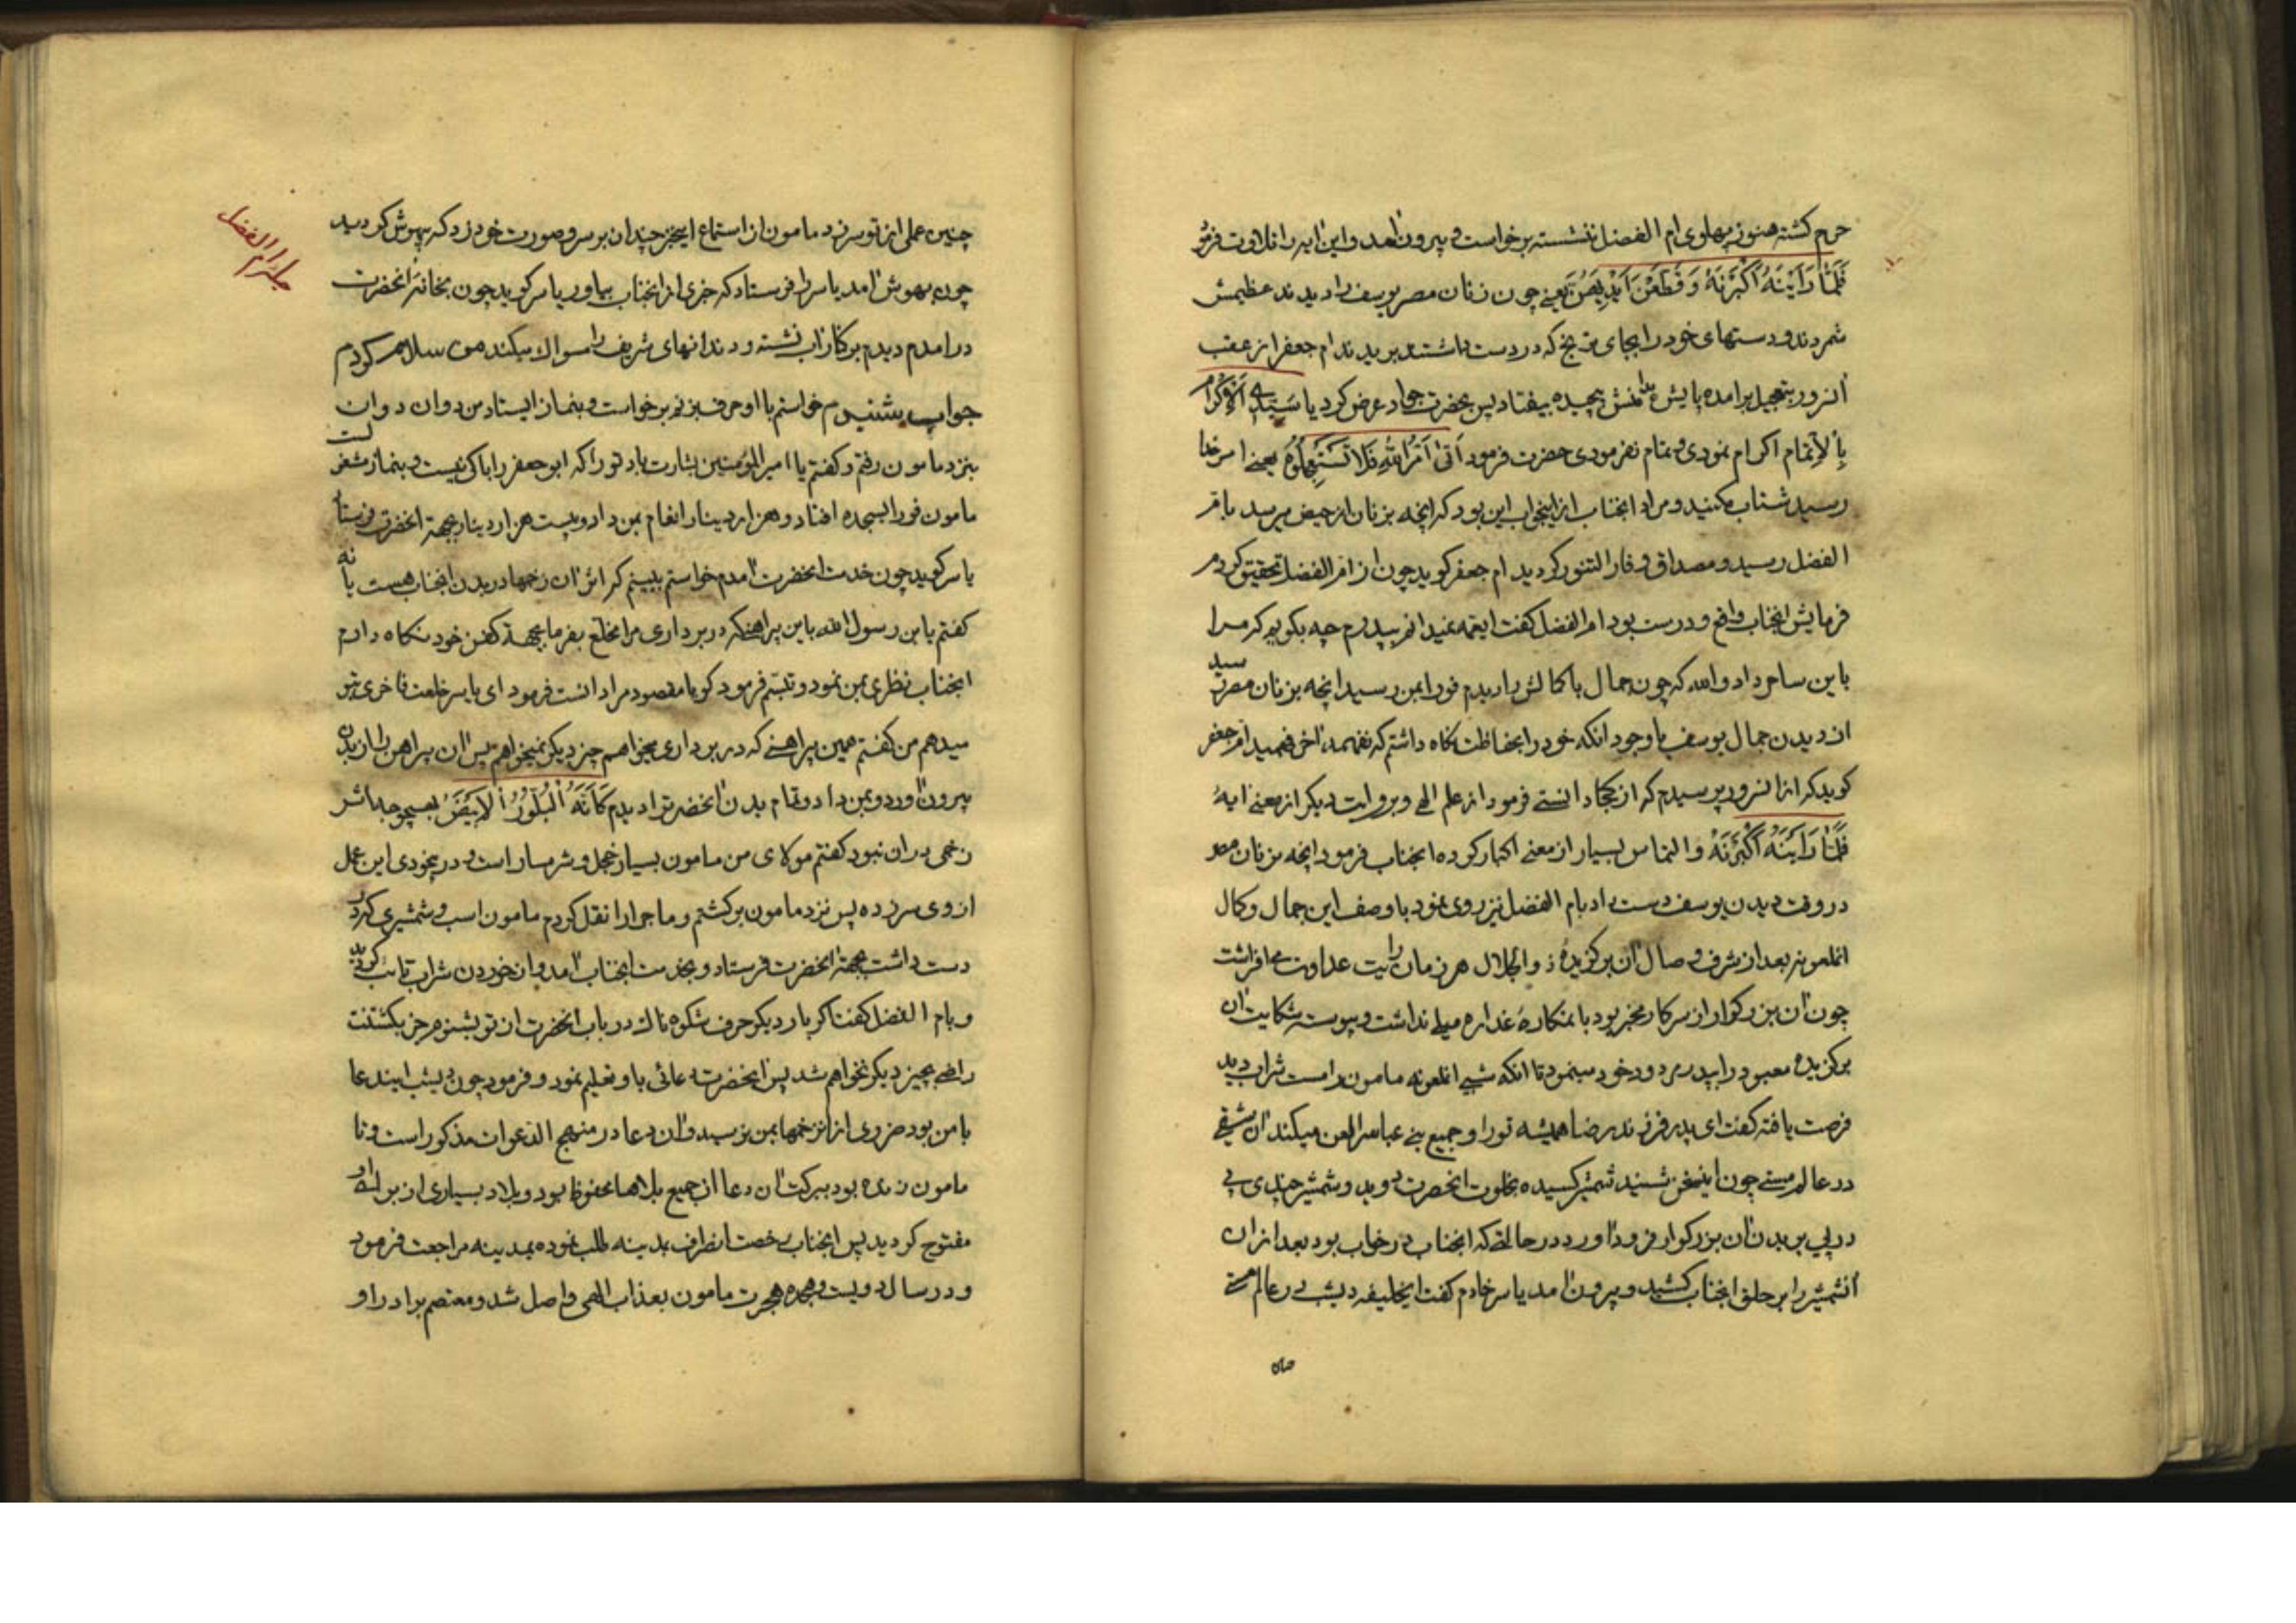 حرم کشته هنوز پهلوی ام الفضل ننشسته برخواست و بیرون آمد و این ایه را تلاوت فرمو
فَلَمَّا رَاَیْنَهُ اَکْبَرْنَهُ وَ قَطَّعْنَ اَیْدِیَهُنَّ یعنی چون زنان مصر یوسف را دیدند عظیمش
شمردند و دستهای خود را بجای ترنج که در دست داشتند بریدند ام جعفر از عقب
انسرور بتعجیل برامده پایش بدامنش پیچیده بیفتاد پس بحضرت جواد عرض کرد یا سَیِّدی اَلاِکْرام
بِالاِتمام اکرام نمودی و تمام نفرمودی حضرت فرمود اَتی اَمْرُ اللهِ فَلا تَسْتَعْجِلُوهُ یعنی امر خدا
رسید شتاب مکنید و مراد انجناب از اینجواب این بود که انچه بزنان از حیض میرسد بام
الفضل رسید و مصداق و فار التنور کردید ام جعفر کوید چون از ام الفضل تحقیق کردم
فرمایش انجناب واقع و درست بود ام الفضل کفت ایعمه نمیدانم پدرم چه بکویم که مرا
باین ساحر داد والله که چون جمال باکمالش را دیدم فورا بمن رسید انچه بزنان مصر رسید
از دیدن جمال یوسف باوجود انکه خود را بحفاظت نکاه داشتم که نفهمد آخر فهمید ام جعفر
کوید که از انسرور پرسیدم که از کجا دانستی فرمود از علم الهی و بروایت دیکر از معنی ایهٔ
فَلَمَّا رَاَیْنَهُ اَکْبَرْنَهُ و التماس بسیار از معنی اکبار کرده انجناب فرمود انچه بزنان مصر
در وقت دیدن یوسف دست داد بام الفضل نیز روی نمود با وصف این جمال و کمال
انملعونه بعد از شرف وصال ان برکزیدهٔ ذو الجلال هر زمان رایت عداوت می افراشت
چون آن بزرکوار از سرکار مخبر بود با نمکارهٔ غداره میلی نداشت و پیوسته شکایت آن
برکزیده معبود را بپدر مردود خود مینمود تا انکه شبی انملعونه مامون را مست شراب دید
فرصت یافته کفت ای پدر فرزند رضا همیشه تو را و جمیع بنی عباس را لعن میکند آن شقی
در عالم مستی چون اینسخن شنید شمشیر کشیده بخلوت انحضرت دوید و شمشیر چندی پی
در پی بر بدن آن بزرکوار فرود آورد در حالتی که انجناب در خواب بود بعد از ان
انشمشیر را بر حلق انجناب کشید و بیرون آمد یاسر خادم کفت ایخلیفه دیشب در عالم مستی
جلد ام الفضل
چنین عملی از تو سر زد مامون از استماع اینخبر چندان بر سر و صورت خود زد که بیهوش کردید
چون بهوش آمد یاسر را فرستاد که خبری از انجناب بیاور یاسر کوید چون بخانهٔ انحضرت
درامدم دیدم بر کنار آب نشسته و دندانهای شریف را مسواک میکند من سلام کردم
جواب شنیدم خواستم با او حرف بزنم برخواست و بنماز ایستاد من دوان دوان
بنزد مامون رفتم و کفتم یا امیر المؤمنین بشارت باد تو را که ابو جعفر را باکی نیست و بنماز مشغول است
مامون فورا بسجده افتاد و هزار دینار انعام بمن داد و بیست هزار دینار بجهة انحضرت فرستاد
یاسر کوید چون خدمت انحضرت آمدم خواستم ببینم که اثر آن زخمها در بدن انجناب هست یا نه
کفتم یابن رسول الله باین پیراهنکه در بر داری مرا مخلع بفرما بجهة کفن خود نکاه دارم
انجناب نظری بمن نمود و تبسّم فرمود کویا مقصود مرا دانست فرمود ای یاسر خلعت فاخری بتو
میدهم من کفتم همین پیراهنی که در بر داری میخواهم چیز دیکر نمیخواهم پس آن پیراهن را از بدن
بیرون آورد و بمن داد و تمام بدن انحضرترا دیدم کَاَنَّهُ اَلْبُلُّوُر اُلاَبْیَض بهیچوجه اثر
زخمی در ان نبود کفتم مولای من مامون بسیار خجل و شرمسار است و در بیخودی این عمل
از وی سر زده پس نزد مامون برکشتم و ماجرا را نقل کردم مامون اسب و شمشیری که در
دست داشت بجهة انحضرت فرستاد و بخدمت انجناب آمد و از خوردن شراب تائب کردید
و بام الفضل کفت اکر بار دیکر حرف شکوه ناک در باب انحضرت از تو بشنوم جز بکشتنت
راضی بچیز دیکر نخواهم شد پس انحضرت دعائی باو تعلیم نمود و فرمود چون دیشب ایندعا
با من بود ضرری از انزخمها بمن نرسید و آن دعا در منهج الدعوات مذکور است و تا
مامون زنده بود ببرکت آن دعا از جمیع بلاها محفوظ بود و بلاد بسیاری از برای او
مفتوح کردید پس انجناب رخصت انصراف بمدینه طلب نموده بمدینه مراجعت فرمود
و در سال دویست و هجده هجرت مامون بعذاب الهی واصل شد و معتصم برادر او